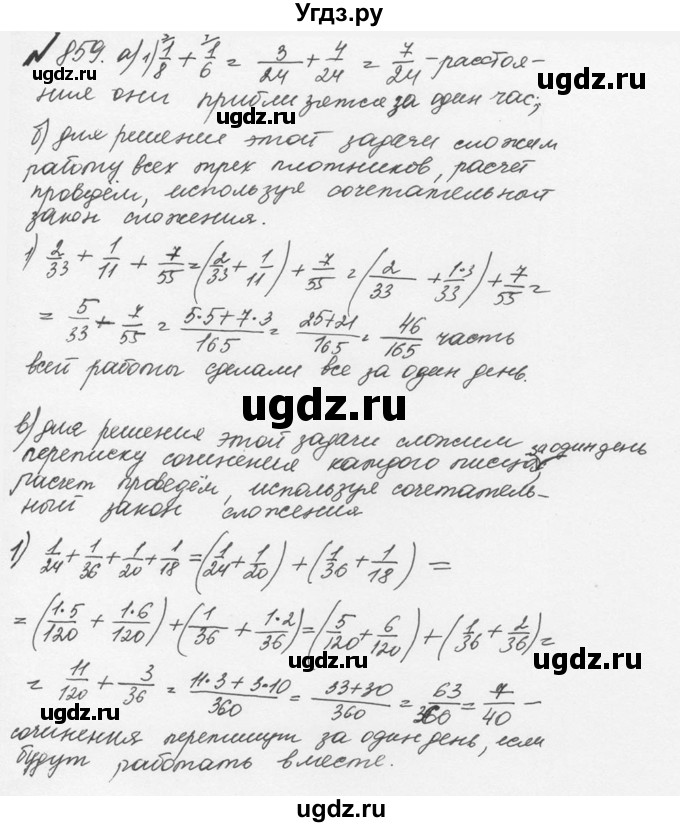 Угдз.ру
№859. а) 1) 1/8 + 1/6 = 3/24 + 4/24 = 7/24 - расстоя-
ния они приблизятся за один час;
ugdz.ru ugdz.ru
б) для решения этой задачи сложим
работу всех трех плотников, расчет
проведём, используя сочетательный
закон сложения.
ugdz.ru ugdz.ru
1) 2/33 + 1/11 + 7/55 = (2/33 + 1/11) + 7/55 = (2/33 + 1·3/33) + 7/55 =
= 5/33 + 7/55 = 5·5+7·3/165 = 25+21/165 = 46/165 часть
ugdz.ru ugdz.ru
всей работы сделали все за один день.
ugdz.ru
в) для решения этой задачи сложим
переписку сочинения каждого писца, за один день
расчет проведём, используя сочетатель-
ный закон сложения
ugdz.ru ugdz.ru
1) 1/24 + 1/36 + 1/20 + 1/18 = (1/24 + 1/20) + (1/36 + 1/18) =
= (1·5/120 + 1·6/120) + (1/36 + 1·2/36) = (5/120 + 6/120) + (1/36 + 2/36) =
ugdz.ru ugdz.ru
= 11/120 + 3/36 = 11·3+3·10/360 = 33+30/360 = 63/360 = 7/40 -
сочинения перепишут за один день, если
ugdz.ru ugdz.ru
будут работать вместе.
ugdz.ru